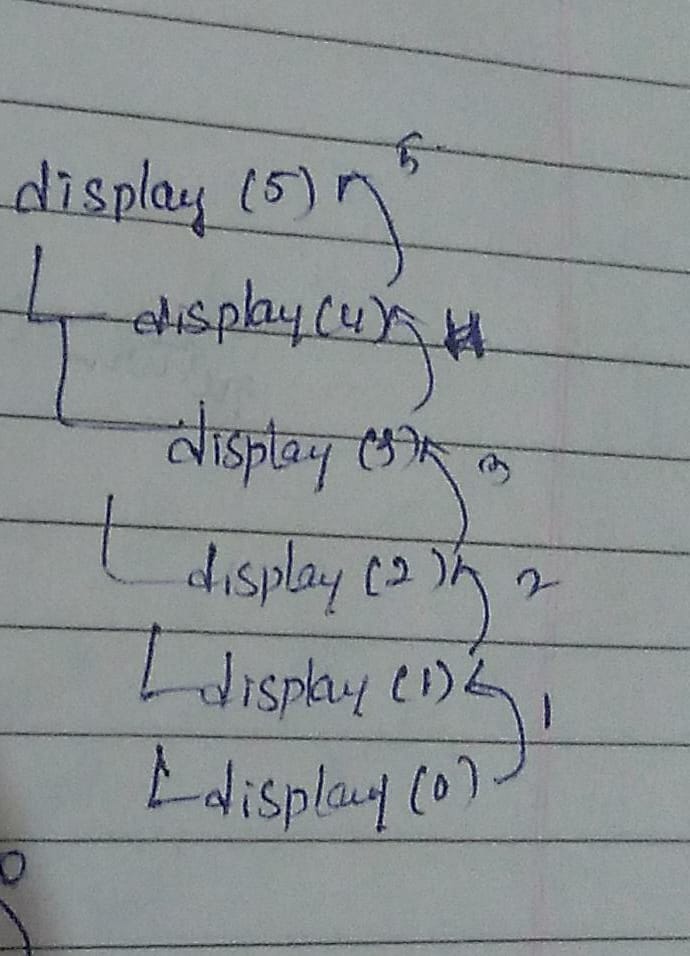 5
display (5)
display (4) 4
display (3) 3
display (2) 2
display (1) 1
display (0)
0